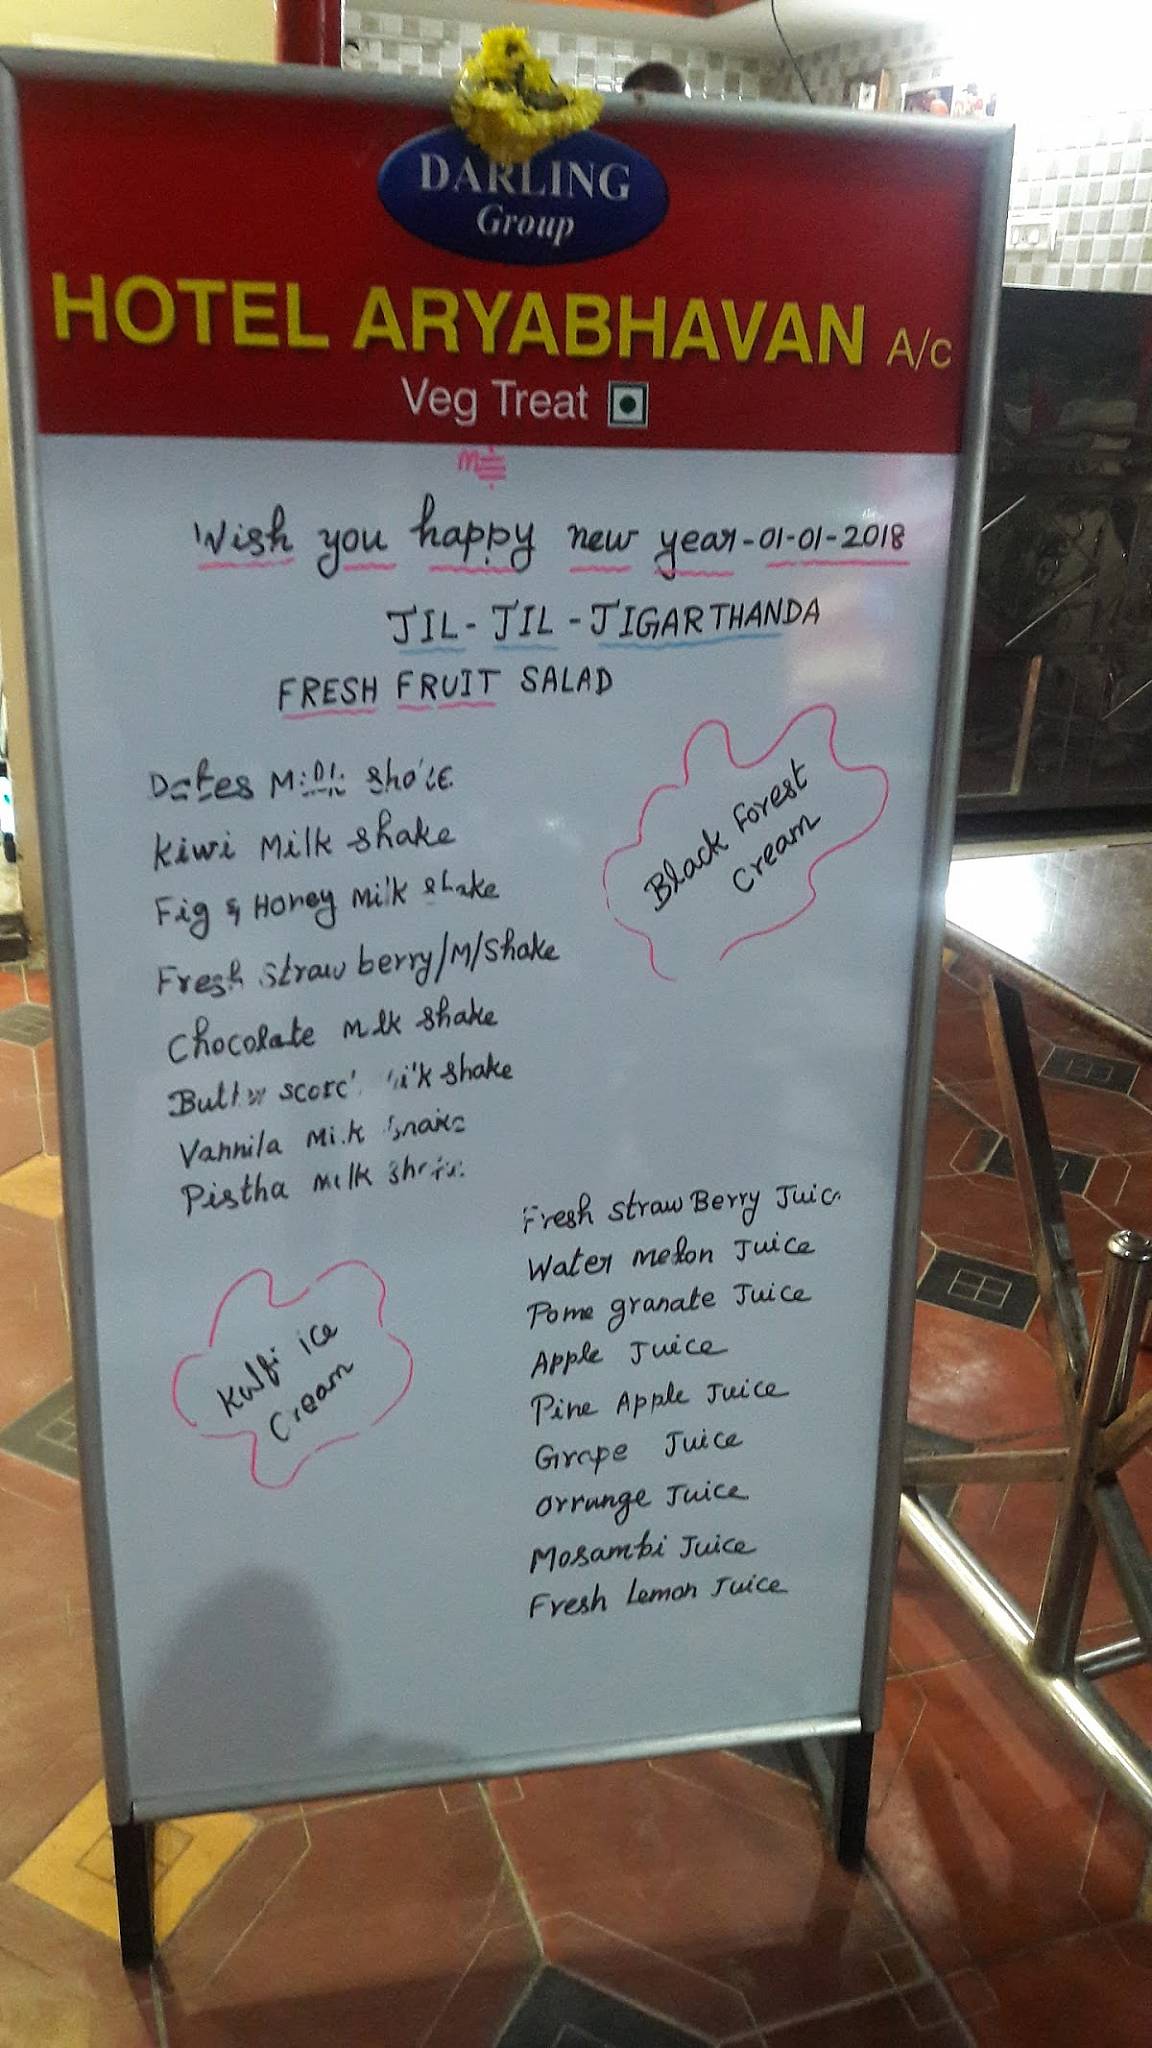 DARLING
Group
HOTEL ARYABHAVAN A/c
Veg Treat
Wish you happy new year-01-01-2018
JIL-JIL-JIGARTHANDA
FRESH FRUIT SALAD
Dates Milk Shake
Kiwi Milk Shake
Fig & Honey Milk Shake
Fresh Straw berry/M/Shake
Chocolate Milk Shake
Butter scorch Milk Shake
Vannila Milk Shake
Pistha Milk Shake
Black Forest
Cream
Fresh Straw Berry Juice
Water melon Juice
Pome granate Juice
Apple Juice
Pine Apple Juice
Grape Juice
Orrange Juice
Mosambi Juice
Fresh Lemon Juice
Kulfi ice
Cream